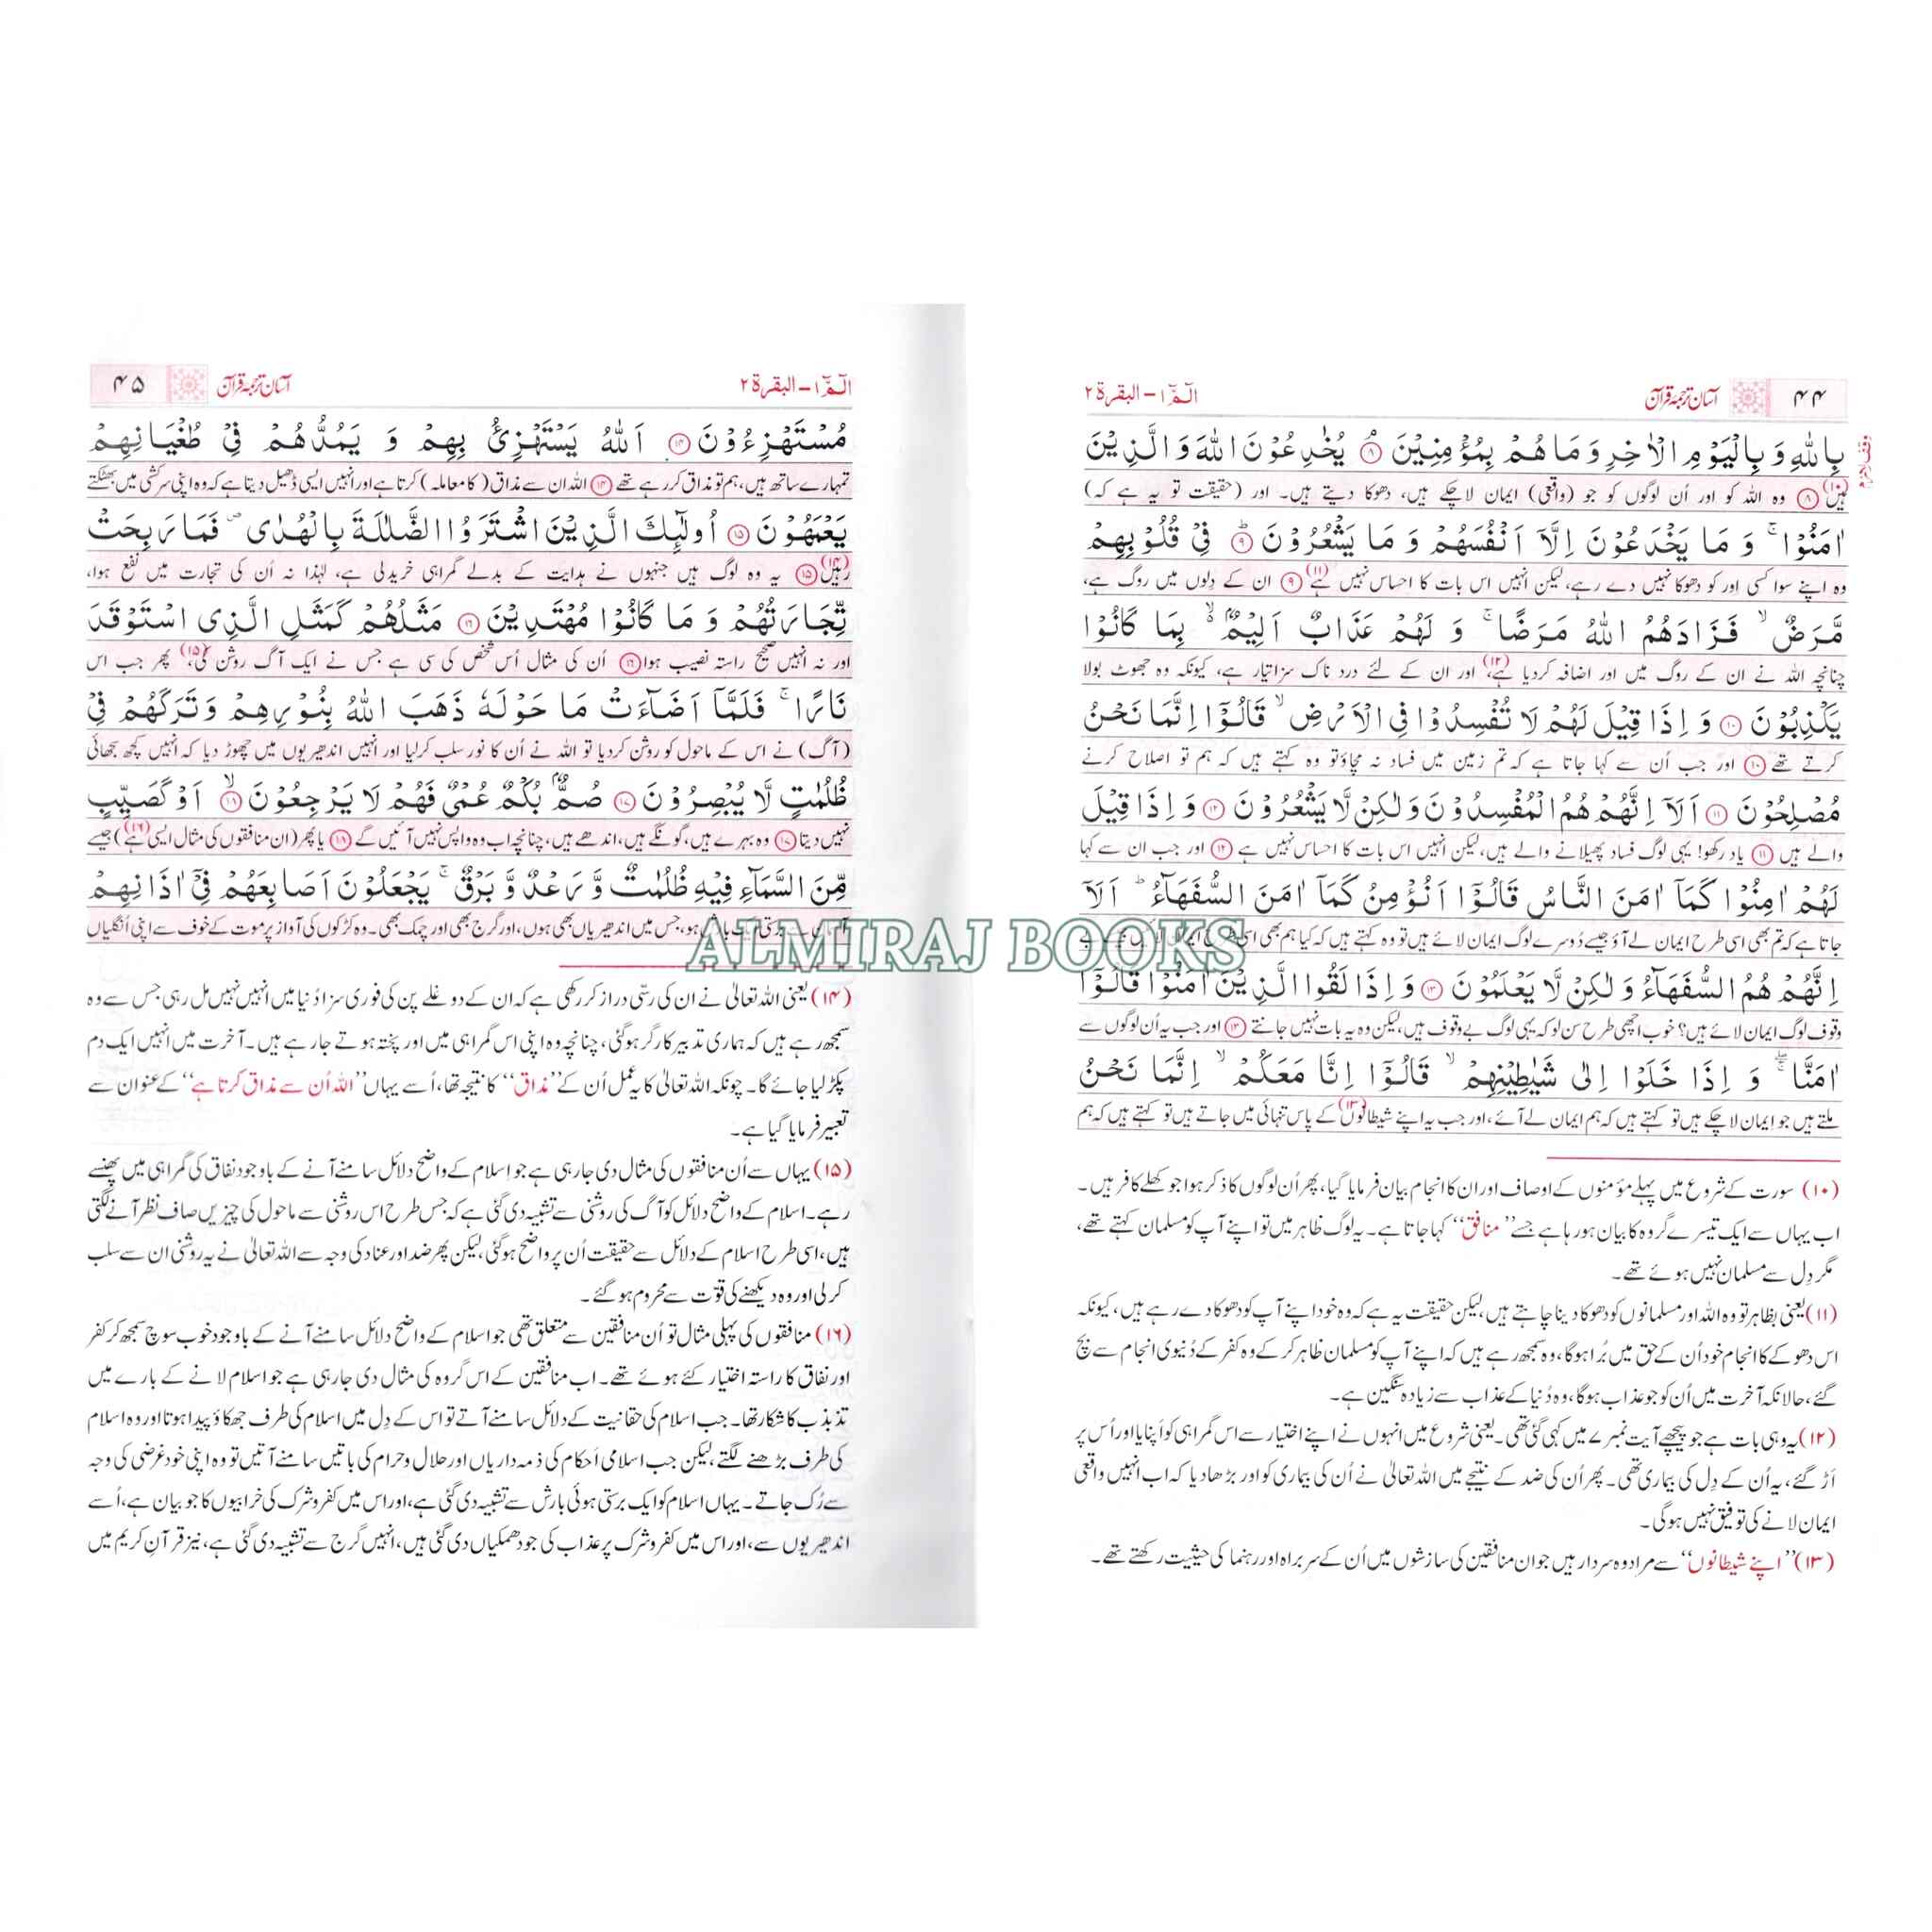 ۴۴ آسان ترجمۂ قرآن الٓمّٓ ۱ — البقرة ۲
بِاللّٰهِ وَ بِالْیَوْمِ الْاٰخِرِ وَ مَا هُمْ بِمُؤْمِنِیْنَ ۘ ۸ یُخٰدِعُوْنَ اللّٰهَ وَ الَّذِیْنَ
وقف لازم
ہیں(۱۰) ۸ وہ اللہ کو اور اُن لوگوں کو جو (واقعی) ایمان لاچکے ہیں، دھوکا دیتے ہیں۔ اور (حقیقت تو یہ ہے کہ)
اٰمَنُوْا ۚ وَ مَا یَخْدَعُوْنَ اِلَّاۤ اَنْفُسَهُمْ وَ مَا یَشْعُرُوْنَ ؕ ۹ فِیْ قُلُوْبِهِمْ
وہ اپنے سوا کسی اور کو دھوکا نہیں دے رہے، لیکن انہیں اس بات کا احساس نہیں ہے(۱۱) ۹ ان کے دِلوں میں روگ ہے،
مَّرَضٌ ۙ فَزَادَهُمُ اللّٰهُ مَرَضًا ۚ وَ لَهُمْ عَذَابٌ اَلِیْمٌۢ ۙ بِمَا كَانُوْا
چنانچہ اللہ نے ان کے روگ میں اور اضافہ کردیا ہے(۱۲)، اور ان کے لئے درد ناک سزا تیار ہے، کیونکہ وہ جھوٹ بولا
یَكْذِبُوْنَ ۱۰ وَ اِذَا قِیْلَ لَهُمْ لَا تُفْسِدُوْا فِی الْاَرْضِ ۙ قَالُوْۤا اِنَّمَا نَحْنُ
کرتے تھے ۱۰ اور جب اُن سے کہا جاتا ہے کہ تم زمین میں فساد نہ مچاؤ تو وہ کہتے ہیں کہ ہم تو اصلاح کرنے
مُصْلِحُوْنَ ۱۱ اَلَاۤ اِنَّهُمْ هُمُ الْمُفْسِدُوْنَ وَ لٰكِنْ لَّا یَشْعُرُوْنَ ۱۲ وَ اِذَا قِیْلَ
والے ہیں ۱۱ یاد رکھو! یہی لوگ فساد پھیلانے والے ہیں، لیکن انہیں اس بات کا احساس نہیں ہے ۱۲ اور جب ان سے کہا
لَهُمْ اٰمِنُوْا كَمَاۤ اٰمَنَ النَّاسُ قَالُوْۤا اَنُؤْمِنُ كَمَاۤ اٰمَنَ السُّفَهَآءُ ؕ اَلَاۤ
جاتا ہے کہ تم بھی اسی طرح ایمان لے آؤ جیسے دُوسرے لوگ ایمان لائے ہیں تو وہ کہتے ہیں کہ کیا ہم بھی اسی طرح ایمان
اِنَّهُمْ هُمُ السُّفَهَآءُ وَ لٰكِنْ لَّا یَعْلَمُوْنَ ۱۳ وَ اِذَا لَقُوا الَّذِیْنَ اٰمَنُوْا قَالُوْۤا
وقوف لوگ ایمان لائے ہیں؟ خوب اچھی طرح سن لو کہ یہی لوگ بے وقوف ہیں، لیکن وہ یہ بات نہیں جانتے ۱۳ اور جب یہ اُن لوگوں سے
اٰمَنَّا ۖۚ وَ اِذَا خَلَوْا اِلٰى شَیٰطِیْنِهِمْ ۙ قَالُوْۤا اِنَّا مَعَكُمْ ۙ اِنَّمَا نَحْنُ
ملتے ہیں جو ایمان لاچکے ہیں تو کہتے ہیں کہ ہم ایمان لے آئے، اور جب یہ اپنے شیطانوں(۱۳) کے پاس تنہائی میں جاتے ہیں تو کہتے ہیں کہ ہم
(۱۰) سورت کے شروع میں پہلے مؤمنوں کے اوصاف اور ان کا انجام بیان فرمایا گیا، پھر اُن لوگوں کا ذکر ہوا جو کھلے کافر ہیں۔
اب یہاں سے ایک تیسرے گروہ کا بیان ہو رہا ہے جسے ”منافق“ کہا جاتا ہے۔ یہ لوگ ظاہر میں تو اپنے آپ کو مسلمان کہتے تھے،
مگر دِل سے مسلمان نہیں ہوئے تھے۔
(۱۱) یعنی بظاہر تو وہ اللہ اور مسلمانوں کو دھوکا دینا چاہتے ہیں، لیکن حقیقت یہ ہے کہ وہ خود اپنے آپ کو دھوکا دے رہے ہیں، کیونکہ
اس دھوکے کا انجام خود اُن کے حق میں بُرا ہوگا، وہ سمجھ رہے ہیں کہ اپنے آپ کو مسلمان ظاہر کرکے وہ کفر کے دُنیوی انجام سے بچ
گئے، حالانکہ آخرت میں اُن کو جو عذاب ہوگا، وہ دُنیا کے عذاب سے زیادہ سنگین ہے۔
(۱۲) یہ وہی بات ہے جو پیچھے آیت نمبر ۷ میں کہی گئی تھی۔ یعنی شروع میں انہوں نے اپنے اختیار سے اس گمراہی کو اَپنایا اور اُس پر
اَڑ گئے، یہ اُن کے دِل کی بیماری تھی۔ پھر اُن کی ضد کے نتیجے میں اللہ تعالیٰ نے اُن کی بیماری کو اور بڑھا دیا کہ اب انہیں واقعی
ایمان لانے کی توفیق نہیں ہوگی۔
(۱۳) ”اپنے شیطانوں“ سے مراد وہ سردار ہیں جو ان منافقین کی سازشوں میں اُن کے سربراہ اور رہنما کی حیثیت رکھتے تھے۔
الٓمّٓ ۱ — البقرة ۲ آسان ترجمۂ قرآن ۴۵
مُسْتَهْزِءُوْنَ ۱۴ اَللّٰهُ یَسْتَهْزِئُ بِهِمْ وَ یَمُدُّهُمْ فِیْ طُغْیَانِهِمْ
تمہارے ساتھ ہیں، ہم تو مذاق کر رہے تھے ۱۴ اللہ ان سے مذاق (کا معاملہ) کرتا ہے اور انہیں ایسی ڈھیل دیتا ہے کہ وہ اپنی سرکشی میں بھٹکتے
یَعْمَهُوْنَ ۱۵ اُولٰٓئِكَ الَّذِیْنَ اشْتَرَوُا الضَّلٰلَةَ بِالْهُدٰى ۪ فَمَا رَبِحَتْ
رہیں(۱۴) ۱۵ یہ وہ لوگ ہیں جنہوں نے ہدایت کے بدلے گمراہی خرید لی ہے، لہٰذا نہ اُن کی تجارت میں نفع ہوا،
تِّجَارَتُهُمْ وَ مَا كَانُوْا مُهْتَدِیْنَ ۱۶ مَثَلُهُمْ كَمَثَلِ الَّذِی اسْتَوْقَدَ
اور نہ انہیں صحیح راستہ نصیب ہوا ۱۶ اُن کی مثال اُس شخص کی سی ہے جس نے ایک آگ روشن کی(۱۵)، پھر جب اس
نَارًا ۚ فَلَمَّاۤ اَضَآءَتْ مَا حَوْلَهٗ ذَهَبَ اللّٰهُ بِنُوْرِهِمْ وَ تَرَكَهُمْ فِیْ
(آگ) نے اس کے ماحول کو روشن کردیا تو اللہ نے اُن کا نور سلب کرلیا اور انہیں اندھیریوں میں چھوڑ دیا کہ انہیں کچھ سجھائی
ظُلُمٰتٍ لَّا یُبْصِرُوْنَ ۱۷ صُمٌّۢ بُكْمٌ عُمْیٌ فَهُمْ لَا یَرْجِعُوْنَ ۙ ۱۸ اَوْ كَصَیِّبٍ
نہیں دیتا ۱۷ وہ بہرے ہیں، گونگے ہیں، اندھے ہیں، چنانچہ اب وہ واپس نہیں آئیں گے ۱۸ یا پھر (ان منافقوں کی مثال ایسی ہے(۱۶)) جیسے
مِّنَ السَّمَآءِ فِیْهِ ظُلُمٰتٌ وَّ رَعْدٌ وَّ بَرْقٌ ۚ یَجْعَلُوْنَ اَصَابِعَهُمْ فِیْۤ اٰذَانِهِمْ
ہو، جس میں اندھیریاں بھی ہوں، اور گرج بھی اور چمک بھی۔ وہ کڑکوں کی آواز پر موت کے خوف سے اپنی اُنگلیاں
ALMIRAJ BOOKS
(۱۴) یعنی اللہ تعالیٰ نے ان کی رسّی دراز کر رکھی ہے کہ ان کے دوغلے پن کی فوری سزا دُنیا میں انہیں نہیں مل رہی جس سے وہ
سمجھ رہے ہیں کہ ہماری تدبیر کارگر ہوگئی، چنانچہ وہ اپنی اس گمراہی میں اور پختہ ہوتے جارہے ہیں۔ آخرت میں انہیں ایک دم
پکڑ لیا جائے گا۔ چونکہ اللہ تعالیٰ کا یہ عمل اُن کے ”مذاق“ کا نتیجہ تھا، اُسے یہاں ”اللہ اُن سے مذاق کرتا ہے“ کے عنوان سے
تعبیر فرمایا گیا ہے۔
(۱۵) یہاں سے اُن منافقوں کی مثال دی جارہی ہے جو اسلام کے واضح دلائل سامنے آنے کے باوجود نفاق کی گمراہی میں پھنسے
رہے۔ اسلام کے واضح دلائل کو آگ کی روشنی سے تشبیہ دی گئی ہے کہ جس طرح اس روشنی سے ماحول کی چیزیں صاف نظر آنے لگتی
ہیں، اسی طرح اسلام کے دلائل سے حقیقت اُن پر واضح ہوگئی، لیکن پھر ضد اور عناد کی وجہ سے اللہ تعالیٰ نے یہ روشنی ان سے سلب
کر لی اور وہ دیکھنے کی قوّت سے محروم ہوگئے۔
(۱۶) منافقوں کی پہلی مثال تو اُن منافقین سے متعلق تھی جو اسلام کے واضح دلائل سامنے آنے کے باوجود خوب سوچ سمجھ کر کفر
اور نفاق کا راستہ اختیار کئے ہوئے تھے۔ اب منافقین کے اس گروہ کی مثال دی جارہی ہے جو اسلام لانے کے بارے میں
تذبذب کا شکار تھا۔ جب اسلام کی حقانیت کے دلائل سامنے آتے تو اس کے دِل میں اسلام کی طرف جھکاؤ پیدا ہوتا اور وہ اسلام
کی طرف بڑھنے لگتے، لیکن جب اسلامی اَحکام کی ذمہ داریاں اور حلال و حرام کی باتیں سامنے آتیں تو وہ اپنی خود غرضی کی وجہ
سے رُک جاتے۔ یہاں اسلام کو ایک برستی ہوئی بارش سے تشبیہ دی گئی ہے، اور اس میں کفر و شرک کی خرابیوں کا جو بیان ہے، اُسے
اندھیریوں سے، اور اس میں کفر و شرک پر عذاب کی جو دھمکیاں دی گئی ہیں، انہیں گرج سے تشبیہ دی گئی ہے، نیز قرآنِ کریم میں